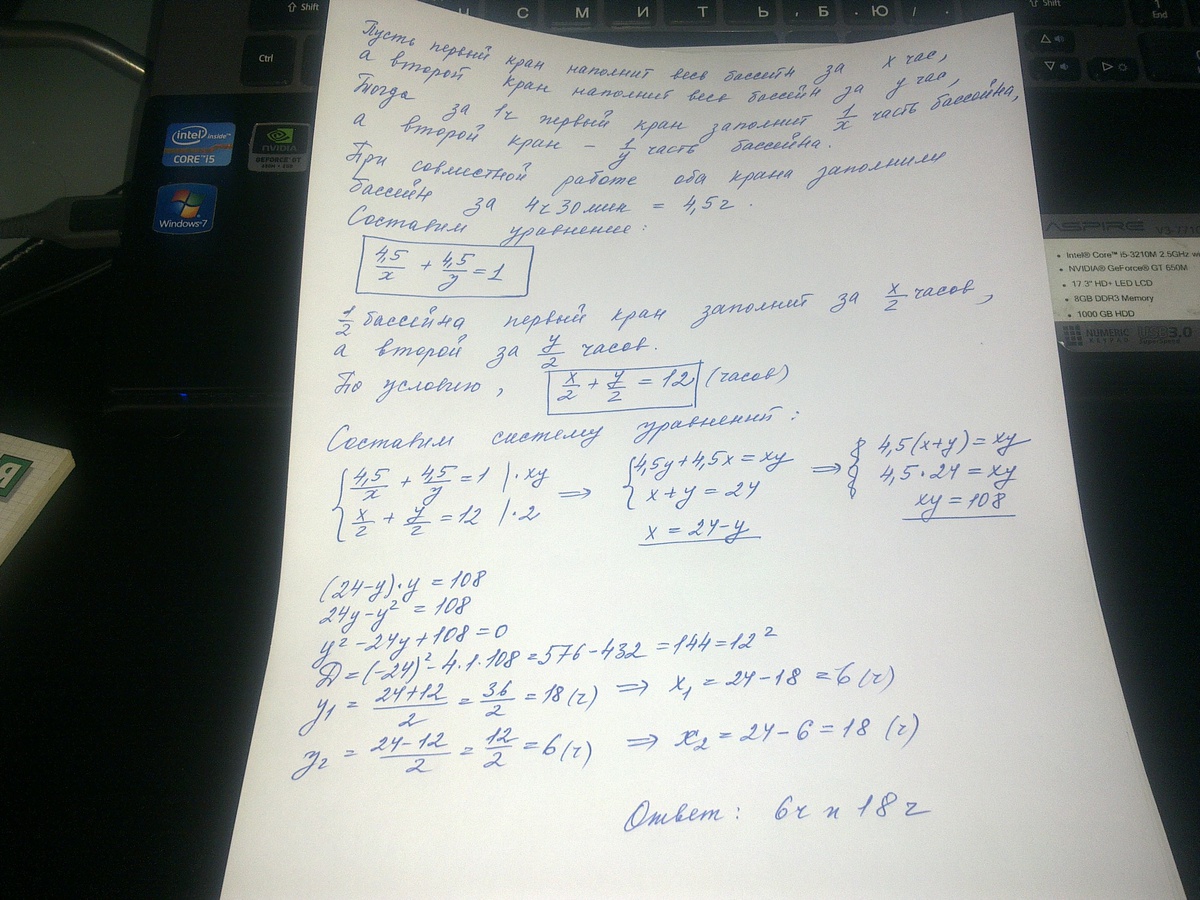 ⇧ Shift
С М И Т Ь , Б . Ю / .
⇧ Shift
1
End
Ctrl
intel inside™
CORE™ i5
NVIDIA
GEFORCE GT
Windows®7
ASPIRE V3-771G
• Intel® Core™ i5-3210M 2.5GHz wi
• NVIDIA® GeForce® GT 650M
• 17.3" HD+ LED LCD
• 8GB DDR3 Memory
• 1000 GB HDD
NUMERIC
KEYPAD
USB 3.0
Пусть первый кран наполнит весь бассейн за x час,
а второй кран наполнит весь бассейн за y час,
Тогда за 1ч первый кран заполнит 1/x часть бассейна,
а второй кран – 1/y часть бассейна.
При совместной работе оба крана заполнили
бассейн за 4ч 30 мин = 4,5ч.
Составим уравнение:
4,5/x + 4,5/y = 1
1/2 бассейна первый кран заполнит за x/2 часов,
а второй за y/2 часов.
По условию, x/2 + y/2 = 12 (часов)
Составим систему уравнений:
{ 4,5/x + 4,5/y = 1 |·xy ⇒ { 4,5y + 4,5x = xy ⇒ { 4,5(x+y) = xy
x/2 + y/2 = 12 |·2 x + y = 24 4,5·24 = xy
x = 24-y xy = 108
(24-y)·y = 108
24y-y² = 108
y²-24y+108=0
D=(-24)²-4·1·108=576-432=144=12²
y₁ = 24+12/2 = 36/2 = 18(ч) ⇒ x₁ = 24-18 = 6(ч)
y₂ = 24-12/2 = 12/2 = 6(ч) ⇒ x₂ = 24-6 = 18 (ч)
Ответ: 6ч и 18ч